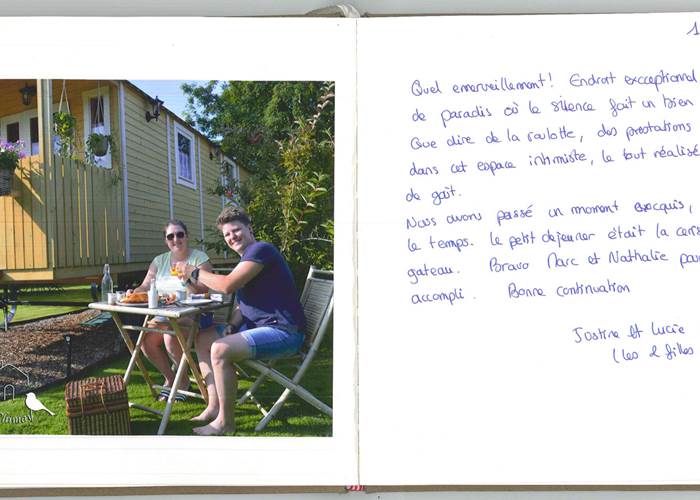 1
Quel emerveillement! Endroit excceptionnel
de paradis où le silence fait un bien
Que dire de la roulotte, des prestations
dans cet espace intimiste, le tout réalisé
de goût.
Nous avons passé un moment exquis,
le temps. Le petit dejeuner était la ceris
gateau. Bravo Marc et Nathalie pour
accompli. Bonne continuation
Justine et Lucie
(les 2 filles